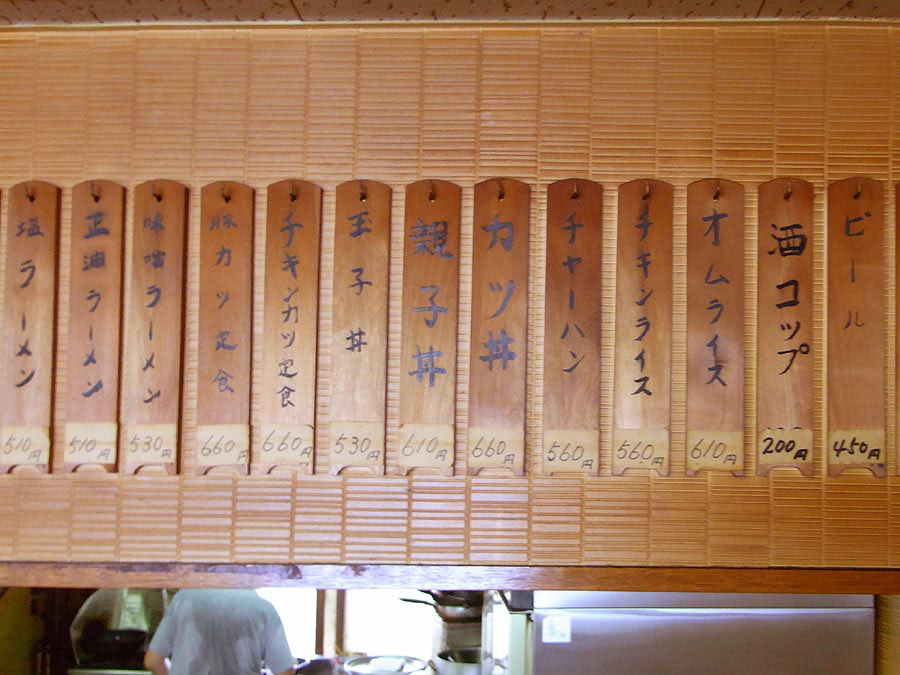 ビール
450円
酒コップ
200円
オムライス
610円
チキンライス
560円
チャーハン
560円
カツ丼
660円
親子丼
610円
玉子丼
530円
チキンカツ定食
660円
豚カツ定食
660円
味噌ラーメン
530円
正油ラーメン
510円
塩ラーメン
510円